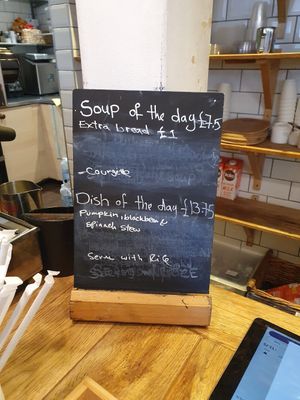 Soup of the day £7.5
Extra bread £1
-Courgette
Dish of the day £13.75
Pumpkin, blackbean &
Spinach stew
Serve with Rice